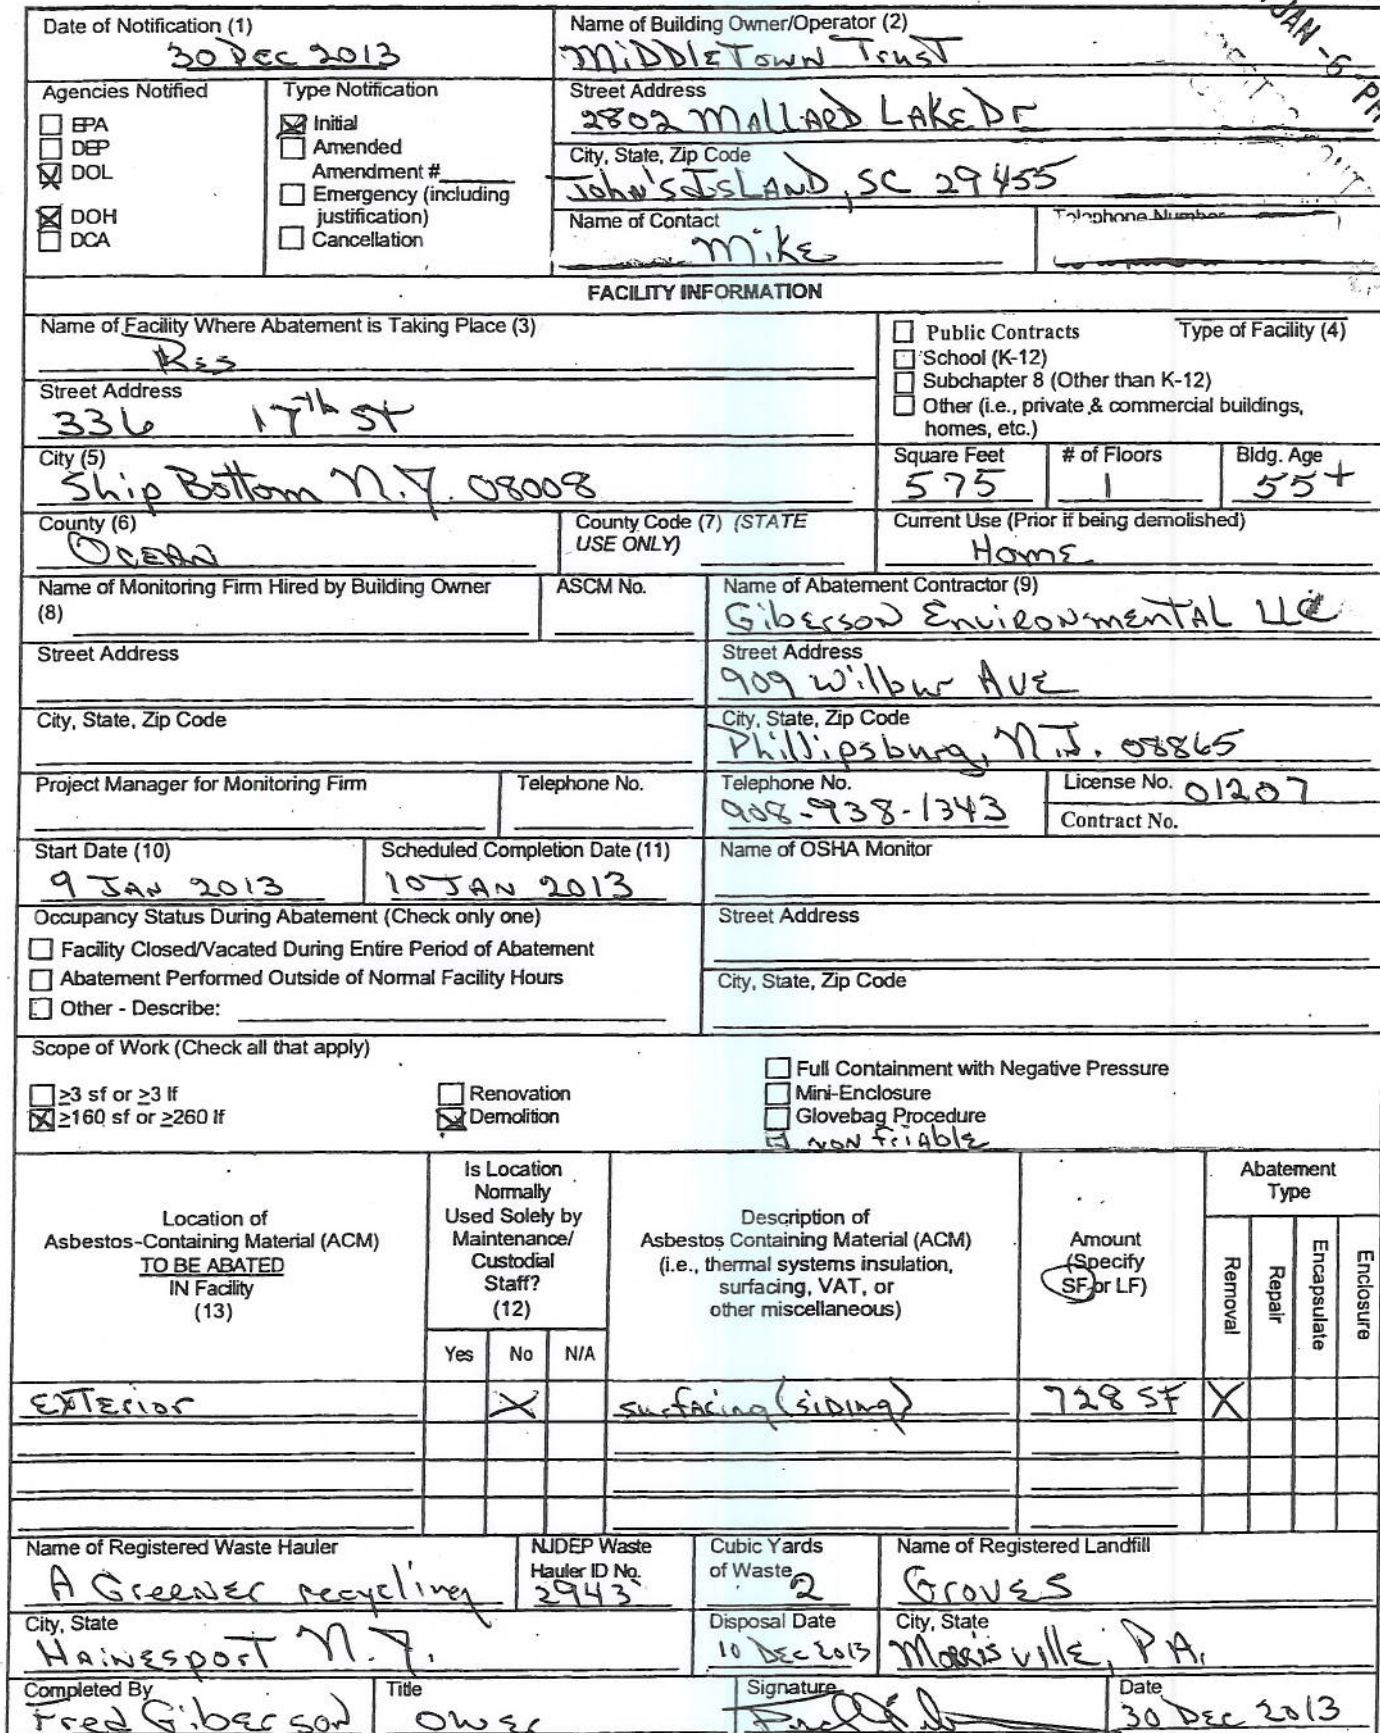 JAN -6 PM
Date of Notification (1)
30 Dec 2013
Name of Building Owner/Operator (2)
MiDDLETOWN Trust
Agencies Notified
EPA
DEP
DOL
DOH
DCA
Type Notification
Initial
Amended
Amendment #
Emergency (including
justification)
Cancellation
Street Address
2802 MALLARD LAKE Dr
City, State, Zip Code
John's ISLAND, SC 29455
Name of Contact
Mike
Telephone Number
FACILITY INFORMATION
Name of Facility Where Abatement is Taking Place (3)
Res
Street Address
336 17th ST
City (5)
Ship Bottom N.J. 08008
County (6)
OCEAN
County Code (7) (STATE
USE ONLY)
Public Contracts
Type of Facility (4)
School (K-12)
Subchapter 8 (Other than K-12)
Other (i.e., private & commercial buildings,
homes, etc.)
Square Feet
575
# of Floors
1
Bldg. Age
55+
Current Use (Prior if being demolished)
Home
Name of Monitoring Firm Hired by Building Owner
(8)
ASCM No.
Name of Abatement Contractor (9)
Giberson Environmental LLC
Street Address
Street Address
909 Wilbur AVE
City, State, Zip Code
City, State, Zip Code
Phillipsburg, N.J. 08865
Project Manager for Monitoring Firm
Telephone No.
Telephone No.
908-938-1343
License No. 01207
Contract No.
Start Date (10)
9 JAN 2013
Scheduled Completion Date (11)
10 JAN 2013
Name of OSHA Monitor
Occupancy Status During Abatement (Check only one)
Facility Closed/Vacated During Entire Period of Abatement
Abatement Performed Outside of Normal Facility Hours
Other - Describe:
Street Address
City, State, Zip Code
Scope of Work (Check all that apply)
≥3 sf or ≥3 lf
≥160 sf or ≥260 lf
Renovation
Demolition
Full Containment with Negative Pressure
Mini-Enclosure
Glovebag Procedure
NON friable
Location of
Asbestos-Containing Material (ACM)
TO BE ABATED
IN Facility
(13)
Is Location
Normally
Used Solely by
Maintenance/
Custodial
Staff?
(12)
Yes No N/A
Description of
Asbestos Containing Material (ACM)
(i.e., thermal systems insulation,
surfacing, VAT, or
other miscellaneous)
Amount
(Specify
SF or LF)
Abatement
Type
Removal
Repair
Encapsulate
Enclosure
EXTerior X surfacing (siDing) 728 SF X
Name of Registered Waste Hauler
A Greener recycling
NJDEP Waste
Hauler ID No.
2943
Cubic Yards
of Waste
2
Name of Registered Landfill
Groves
City, State
Hainesport N.J.
Disposal Date
10 Dec 2013
City, State
Morrisville, PA.
Completed By
Fred Giberson
Title
Ower
Signature
Date
30 Dec 2013